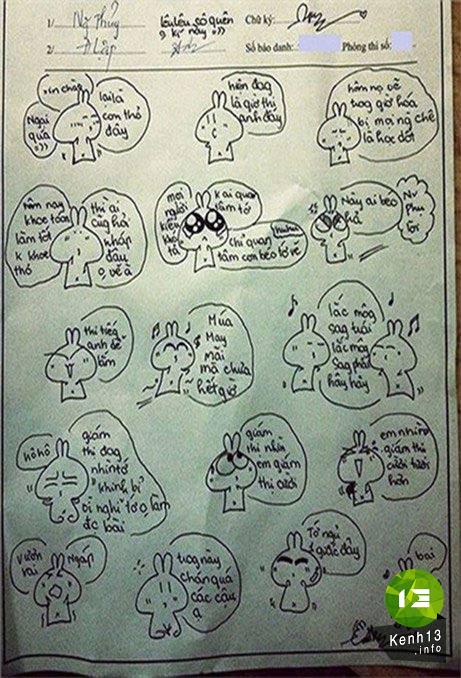 1/ Ng Thúy
2/ A Lập
lêu lêu sô quên
kí này :))
Chữ ký:
Số báo danh:
Phòng thi số:
xin chào
Ngại
quá
:))
lại là
con thỏ
đây
hiện đag
là giờ thi
anh đây
hôm nọ vẽ
trog giờ hóa
bị mọi ng chê
là học dốt
hôm nay
khoe toán
làm tốt
k khoe
thỏ
thì ai
cũg hỏi
khắp
đây
mọi
người
kiểu
k ai quan
tâm tớ
huhu
chỉ quan
tâm con béo
Này ai béo
hả
thi tiếg
anh dễ
lắm
Múa
May
Mãi
mà chưa
hết giờ
lắc môg
sag trái
lắc môg
sag phải
hây hây
hô hô
giám
thị đag
nhìn tớ
khinh bỉ
làm
đc bài
giám
thị nhìn
em giám
thị cười
em nhìn
giám thị
cười tươi
hơn
vươn
vai
Ngáp
trog này
chán quá
các cậu
ạ
Tớ ngủ
giấc đây
bai
Kenh13
.info